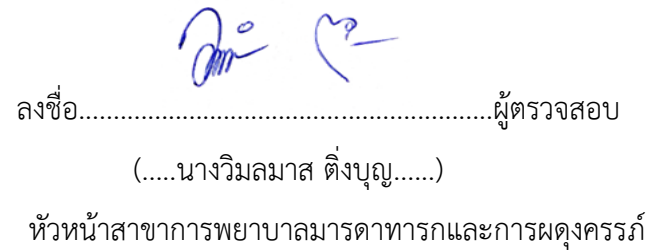 ลงชื่อ............................................................ผู้ตรวจสอบ
(.....นางวิมลมาส ติ่งบุญ......)
หัวหน้าสาขาการพยาบาลมารดาทารกและการผดุงครรภ์